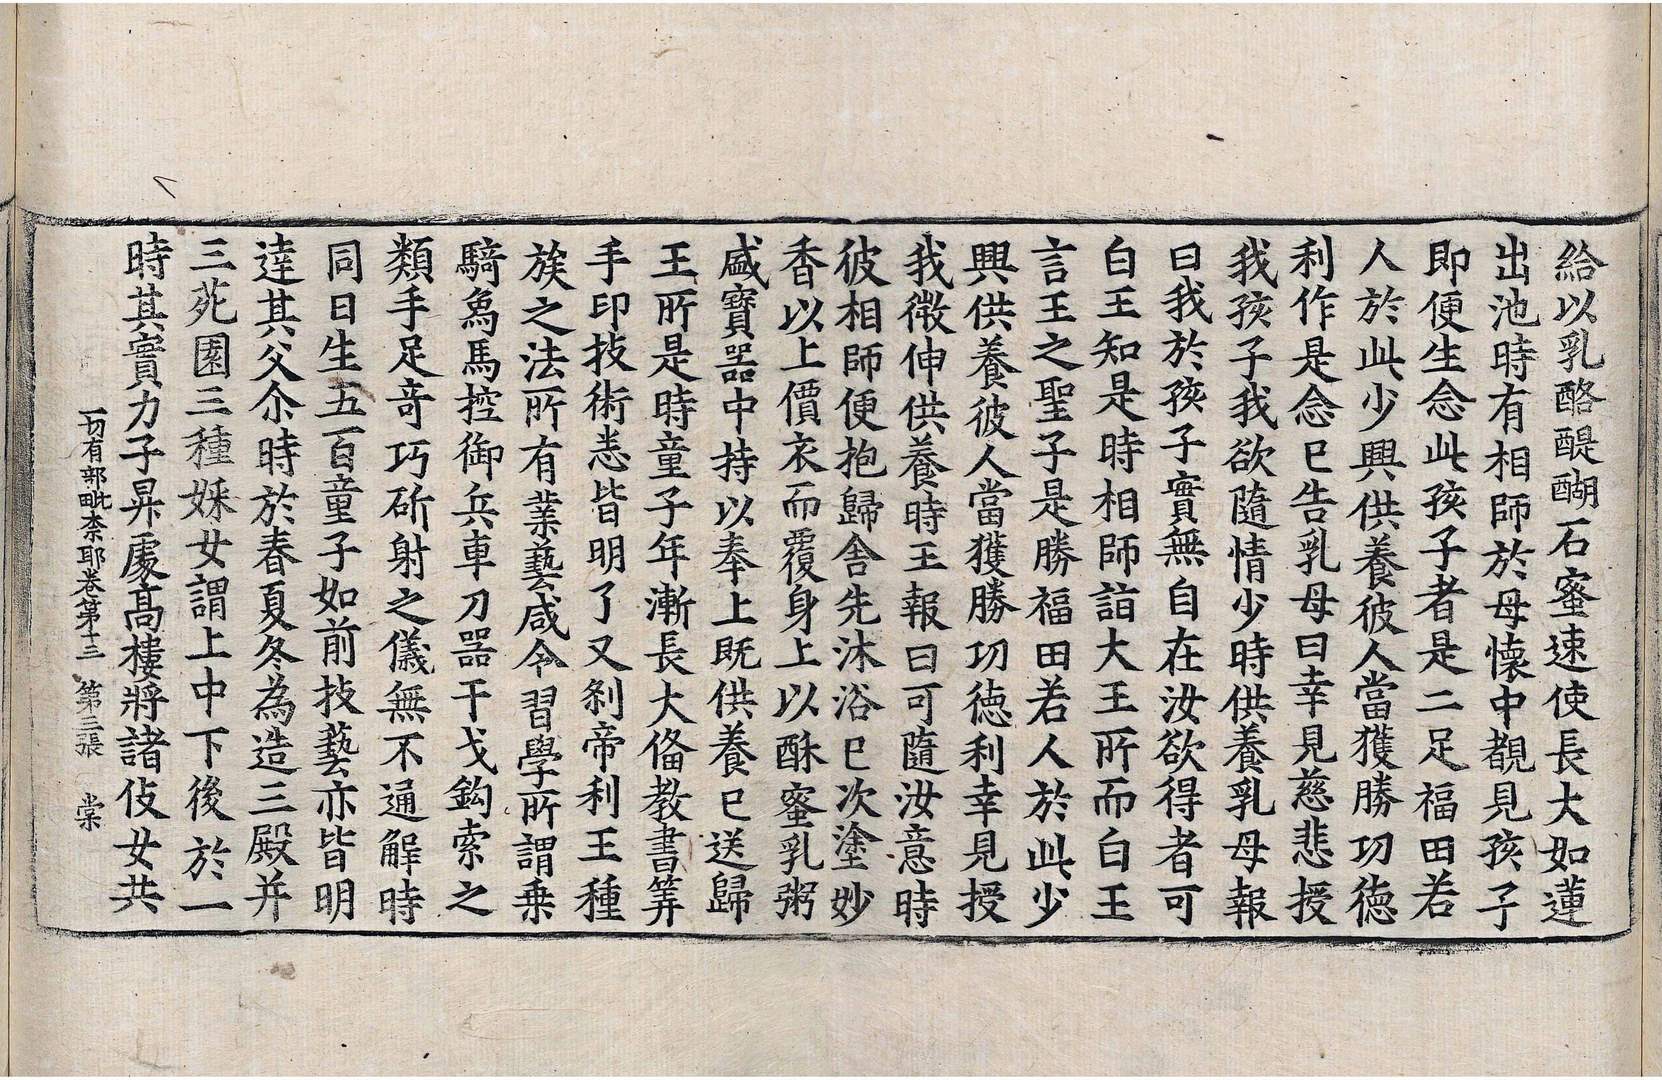 給以乳酪醍醐石蜜速使長大如蓮
出池時有相師於母懷中覩見孩子
即便生念此孩子者是二足福田若
人於此少興供養彼人當獲勝功德
利作是念已告乳母曰幸見慈悲授
我孩子我欲隨情少時供養乳母報
曰我於孩子實無自在汝欲得者可
白王知是時相師詣大王所而白王
言王之聖子是勝福田若人於此少
興供養彼人當獲勝功德利幸見授
我微伸供養時王報曰可隨汝意時
彼相師便抱歸舍先沐浴已次塗妙
香以上價衣而覆身上以酥蜜乳粥
盛寶器中持以奉上既供養已送歸
王所是時童子年漸長大俻教書筭
手印技術悉皆明了又剎帝利王種
族之法所有業藝咸令習學所謂乗
騎象馬控御兵車刀器干戈鈎索之
類手足竒巧斫射之儀無不通解時
同日生五百童子如前技藝亦皆明
達其父尒時於春夏冬為造三殿并
三苑園三種婇女謂上中下後於一
時其實力子昇處高樓將諸伎女共
一切有部毗柰耶卷第十三　第三張　棠